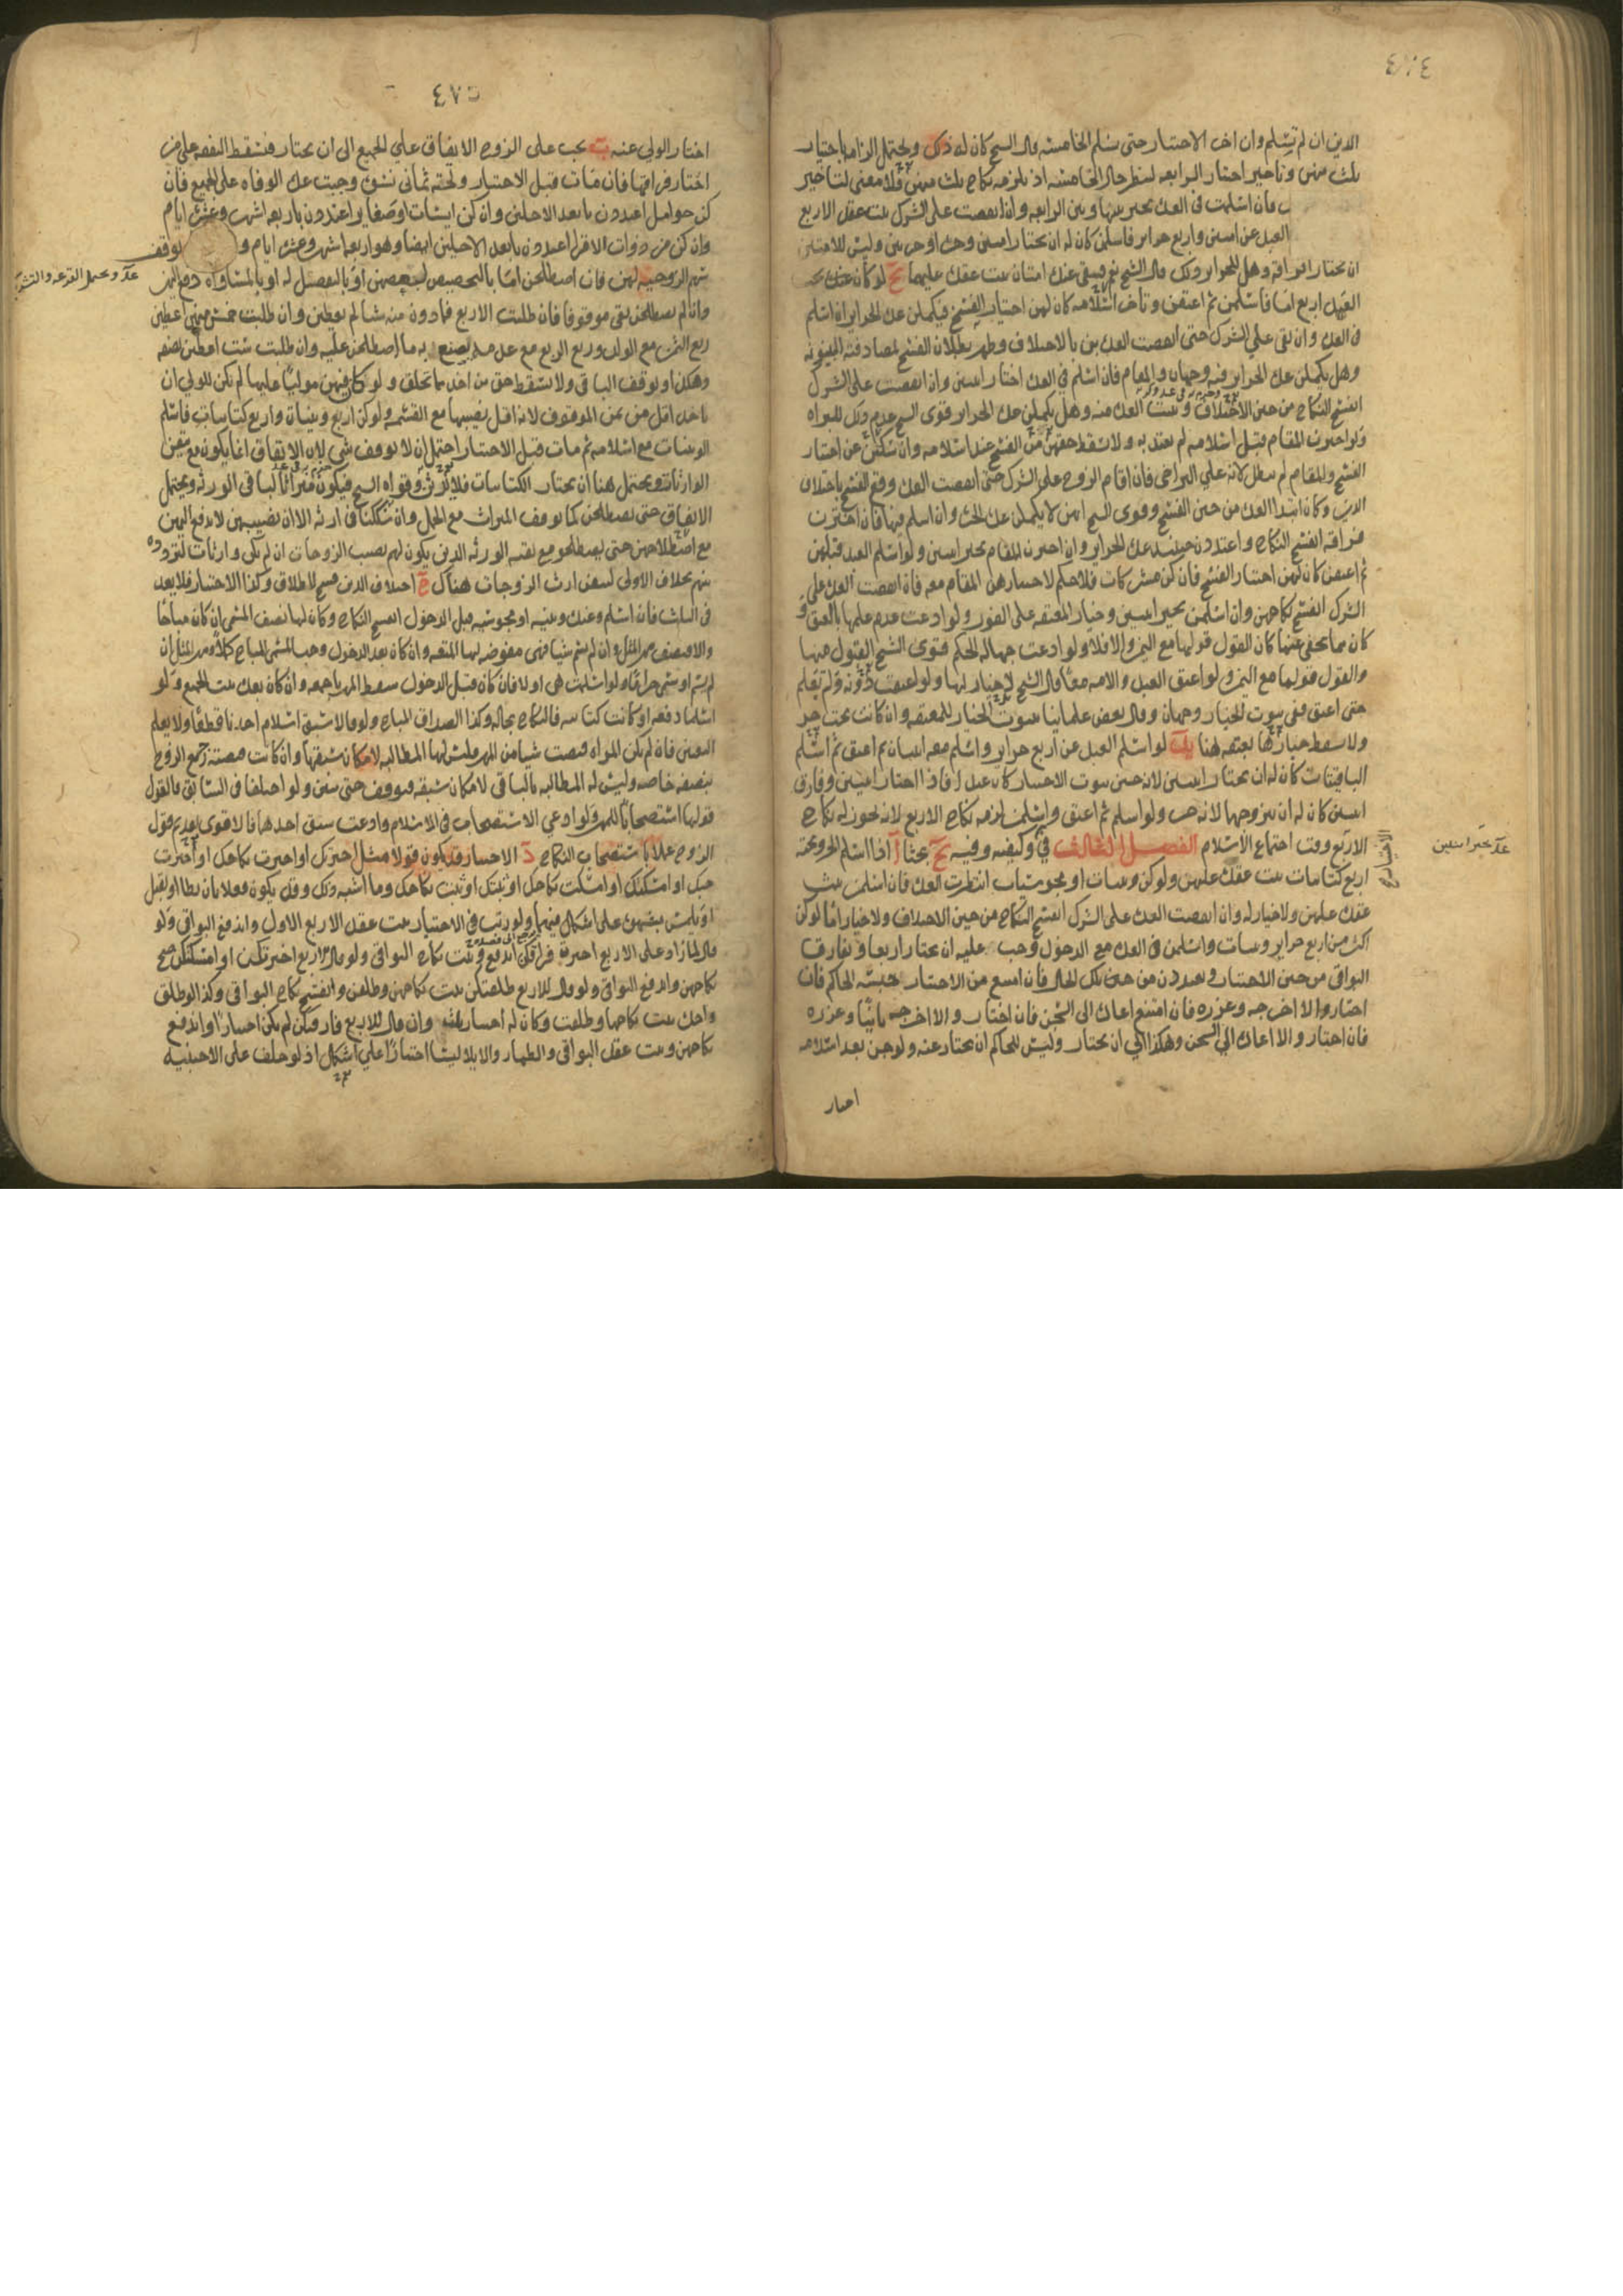 ٤٧٤
الدين ان لم تسلم وان اخر الاختيار حتى تسلم الخامسة قال الشيخ كان له ذلك ويحتمل الزامه باختيار
ثلث منهن وتاخير اختيار الرابعة لينظر حال الخامسة اذ يلزمه نكاح ثلث منهن فلا معنى لتاخير
فان اسلمت في العدة تخير بينها وبين الرابعة وان انقضت على الشرك ثبت عقد الاربع
العبد عن امتين واربع حراير فاسلمن كان له ان يختار امتين وحرة او حرتين وليس للامتين
ان يختارا فراقه وهل للحراير ذلك قال الشيخ نعم فيبقى عنده امتان ثبت عقده عليهما لو كان عنده
العبد اربع اما فاسلمن ثم اعتقن وتاخر اسلامه كان لهن اختيار الفسخ فيكملن عدة الحراير ان اسلم
في العدة وان بقي على الشرك حتى انقضت العدة بن بالاختلاف وظهر بطلان الفسخ لمصادفته البينونة
وهل يكملن عدة الحراير فيه وجهان والمقام فان اسلم في العدة اختار اثنتين وان انقضت على الشرك
انفسخ النكاح من حين الاختلاف وثبت العدة منه وهل يكملن عدة الحراير قوى الشيخ عدم ذلك للبراة
ولو اخترن المقام قبل اسلامه لم يعتد به ولا يسقط حقهن من الفسخ عند اسلامه وان سكتن عن اختيار
الفسخ والمقام لم يبطل لانه على التراخي فان اقام الزوج على الشرك حتى انقضت العدة وقع الفسخ باختلاف
الدين وكان ابتدا العدة من حين الفسخ وقوى الشيخ انهن لا يكملن عدة الحرة وان اسلم فيها فان اخترن
فراقه انفسخ النكاح واعتددن حينئذ عدة الحراير وان اخترن المقام تخير اثنتين ولو اسلم العبد قبلهن
ثم اعتقن كان لهن اختيار الفسخ فان كن مشركات فلا حكم لاختيارهن المقام معه فان انقضت العدة على
الشرك انفسخ نكاحهن وان اسلمن تخير اثنتين وخيار المعتقة على الفور ولو ادعت عدم علمها بالعتق و
كان مما يخفى عنها كان القول قولها مع اليمين والا فلا ولو ادعت جهالة الحكم فقوى الشيخ القبول منها
والقول قولها مع اليمين ولو اعتق العبد والامة معا قال الشيخ لا خيار لها ولو اعتقت دونه ولم تعلم
حتى اعتق ففي ثبوت الخيار وجهان وقال بعض علماينا بثبوت الخيار للمعتقة وان كانت تحت حر
ولا يسقط خيارها بعتقه هنا يب لو اسلم العبد عن اربع حراير واسلم معه اثنتان ثم اعتق ثم اسلم
الباقيات كان له ان يختار اثنتين لانه حين ثبوت الاختيار كان عبدا فاذا اختار اثنتين وفارق
اثنتين كان له ان يتزوجهما لانه حر ولو اسلم ثم اعتق واسلمن لزمه نكاح الاربع لانه يجوز له نكاح
الاربع وقت اجتماع الاسلام الفصل الثالث في كيفيه وفيه بحثا آ اذا اسلم الحر وتحته
اربع كتابيات ثبت عقده عليهن ولو كن وثنيات او مجوسيات انتظرت العدة فان اسلمن ثبت
عقده عليهن ولا خيار له وان انقضت العدة على الشرك انفسخ النكاح من حين الاختلاف ولا خيار اما لو كن
اكثر من اربع حراير وثنيات واسلمن في العدة مع الدخول وجب عليه ان يختار اربعا ويفارق
البواقي من حين الاختيار ويعتددن من حين تلك الحال فان امتنع من الاختيار حبسه الحاكم فان
اختار والا اخرجه وعزره فان امتنع اعاده الى السجن فان اختار والا اخرجه ثانيا وعزره
فان اختار والا اعاده الى السجن وهكذا الى ان يختار وليس للحاكم ان يختار عنه ولو جن بعد اسلامه
اختار
٤٧٥
اختار الولي عنه ب يجب على الزوج الانفاق على الجميع الى ان يختار فتسقط النفقة على من
اختار فراقها فان مات قبل الاختيار وتحته ثماني نسوة وجبت عدة الوفاة على الجميع فان
كن حوامل اعتددن بابعد الاجلين وان كن ايسات او صغاير اعتددن باربعة اشهر وعشرة ايام
وان كن من ذوات الاقرا اعتددن بابعد الاجلين ايضا وهو اربعة اشهر وعشرة ايام و يوقف
سهم الزوجية لهن فان اصطلحن اما بالتخصيص لبعضهن او بالتفضيل له او بالمساواة دفع اليهن
وان لم يصطلحن بقي موقوفا فان طلبت الاربع فما دون منه شيا لم يعطين وان طلبت خمس منهن اعطين
ربع الثمن مع الولد وربع الربع مع عدمه يصنع به ما اصطلحن عليه وان طلبت ست اعطين نصفه
وهكذا ويوقف الباقي ولا يسقط حق من اخذ مما تخلف ولو كان فيهن موليا عليها لم يكن للولي ان
ياخذ اقل من ثمن الموقوف لانه اقل نصيبها مع القسمة ولو كن اربع وثنيات واربع كتابيات فاسلم
الوثنيات مع اسلامه ثم مات قبل الاختيار احتمل ان لا يوقف شي لان الايقاف انما يكون مع يقين
الوارثات ويحتمل هنا ان يختار الكتابيات فلا يرثن وقواه الشيخ فيكون ميراثا لباقي الورثة ويحتمل
الايقاف حتى يصطلحن كما توقف الميراث مع الحمل وان شككنا في ارثه الا ان نصيبهن لا يدفع اليهن
مع اصطلاحهن حتى يصطلحن مع بقية الورثة الذين يكون لهم نصيب الزوجات ان لم يكن وارثات لتردده
بينهم بخلاف الاولى لتيقن ارث الزوجات هناك ج اختلاف الدين فسخ لا طلاق وكذا الاختيار فلا يعد
في الثلث فان اسلم وعنده وثنية او مجوسية قبل الدخول انفسخ النكاح وكان لها نصف المسمى ان كان مباحا
والا فنصف مهر المثل وان لم يسم شيا فهي مفوضة لها المتعة وان كان بعد الدخول وجب المسمى المباح كملا ومهر المثل ان
لم يسم او سمى حراما ولو اسلمت هي اولا فان كان قبل الدخول سقط المهر باجمعه وان كان بعده ثبت الجميع ولو
اسلما دفعة او كانت كتابية فالنكاح بحاله وكذا الصداق المباح ولو قالا سبق اسلام احدنا قطعا ولا يعلم
التعيين فان لم تكن المراة قبضت شيا من المهر فليس لها المطالبة لامكان سبقها وان كانت قبضته رجع الزوج
بنصفه خاصة وليس له المطالبة بالباقي لامكان سبقه فيوقف حتى يتبين ولو اختلفا في السابق فالقول
قولها استصحابا للمهر ولو ادعى الاستصحاب في الاسلام وادعت سبق احدهما فالاقوى تقديم قول
الزوج عملا باستصحاب النكاح د الاختيار قد يكون قولا مثل اخترتك او اخترت نكاحك او اخترت
حبسك او امسكتك او امسكت نكاحك او ثبتك او ثبت نكاحك وما اشبه ذلك وقد يكون فعلا بان يطا او يقبل
او يلمس بشهوة على اشكال فيهما ولو رتب في الاختيار ثبت عقد الاربع الاول واندفع البواقي ولو
قال لما زاد على الاربع اخترت فراقكن اندفع وثبت نكاح البواقي ولو قال لاربع اخترتكن او امسكتكن صح
نكاحهن واندفع البواقي ولو قال للاربع طلقتكن ثبت نكاحهن وطلقن وانفسخ نكاح البواقي وكذا لو طلق
واحدة ثبت نكاحها وطلقت وكان له اختيار ثلث وان قال للاربع فارقتكن لم يكن اختيارا واندفع
نكاحهن وثبت عقد البواقي والظهار والايلا ليسا اختيارا على اشكال اذ لو حلف على الاجنبية
ويحتمل القرعة والتشريك